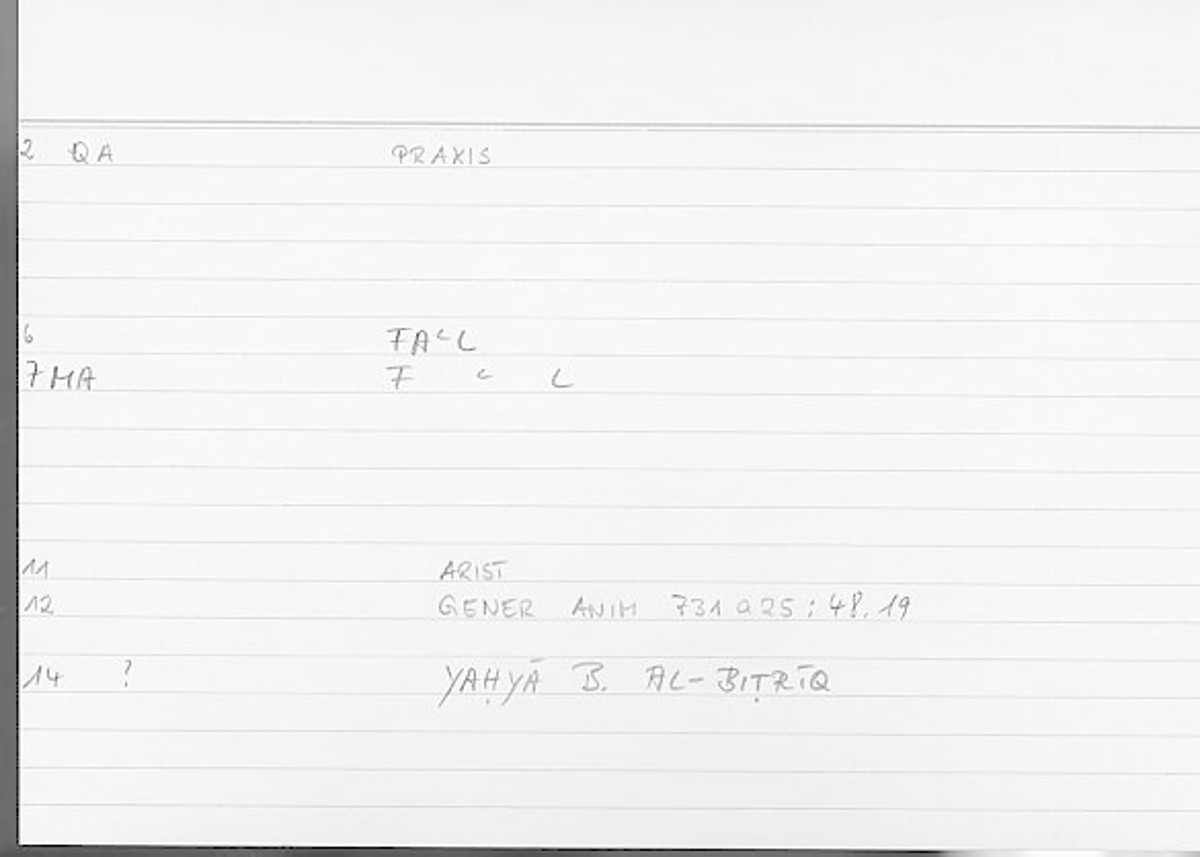 2 QA PRAXIS
6 FAʿL
7 MA F ʿ L
11 ARIST
12 GENER ANIM 731 a 25 : 48.19
14 ? YAḤYĀ B. AL-BIṬRĪQ